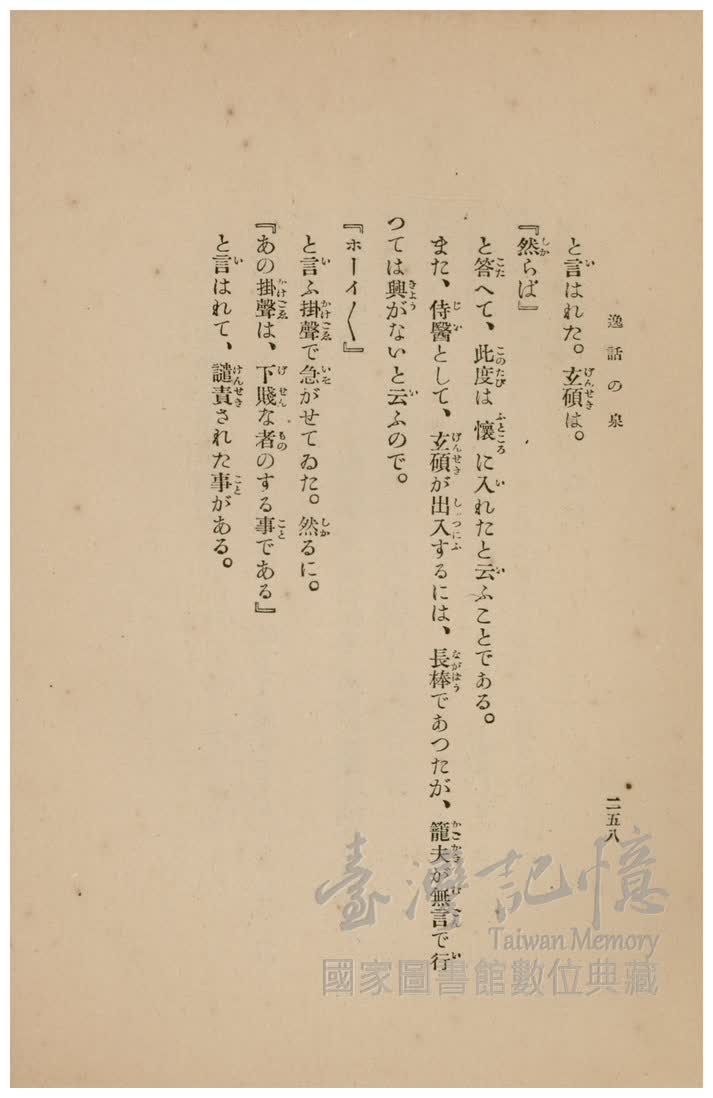 逸話の泉
二五八
と言はれた。玄碩は。
『然らば』
と答へて、此度は懷に入れたと云ふことである。
また、侍醫として、玄碩が出入するには、長棒であつたが、籠夫が無言で行
つては興がないと云ふので。
『ホーイ〱』
と言ふ掛聲で急がせてゐた。然るに。
『あの掛聲は、下賤な者のする事である』
と言はれて、譴責された事がある。
臺灣記憶
Taiwan Memory
國家圖書館數位典藏